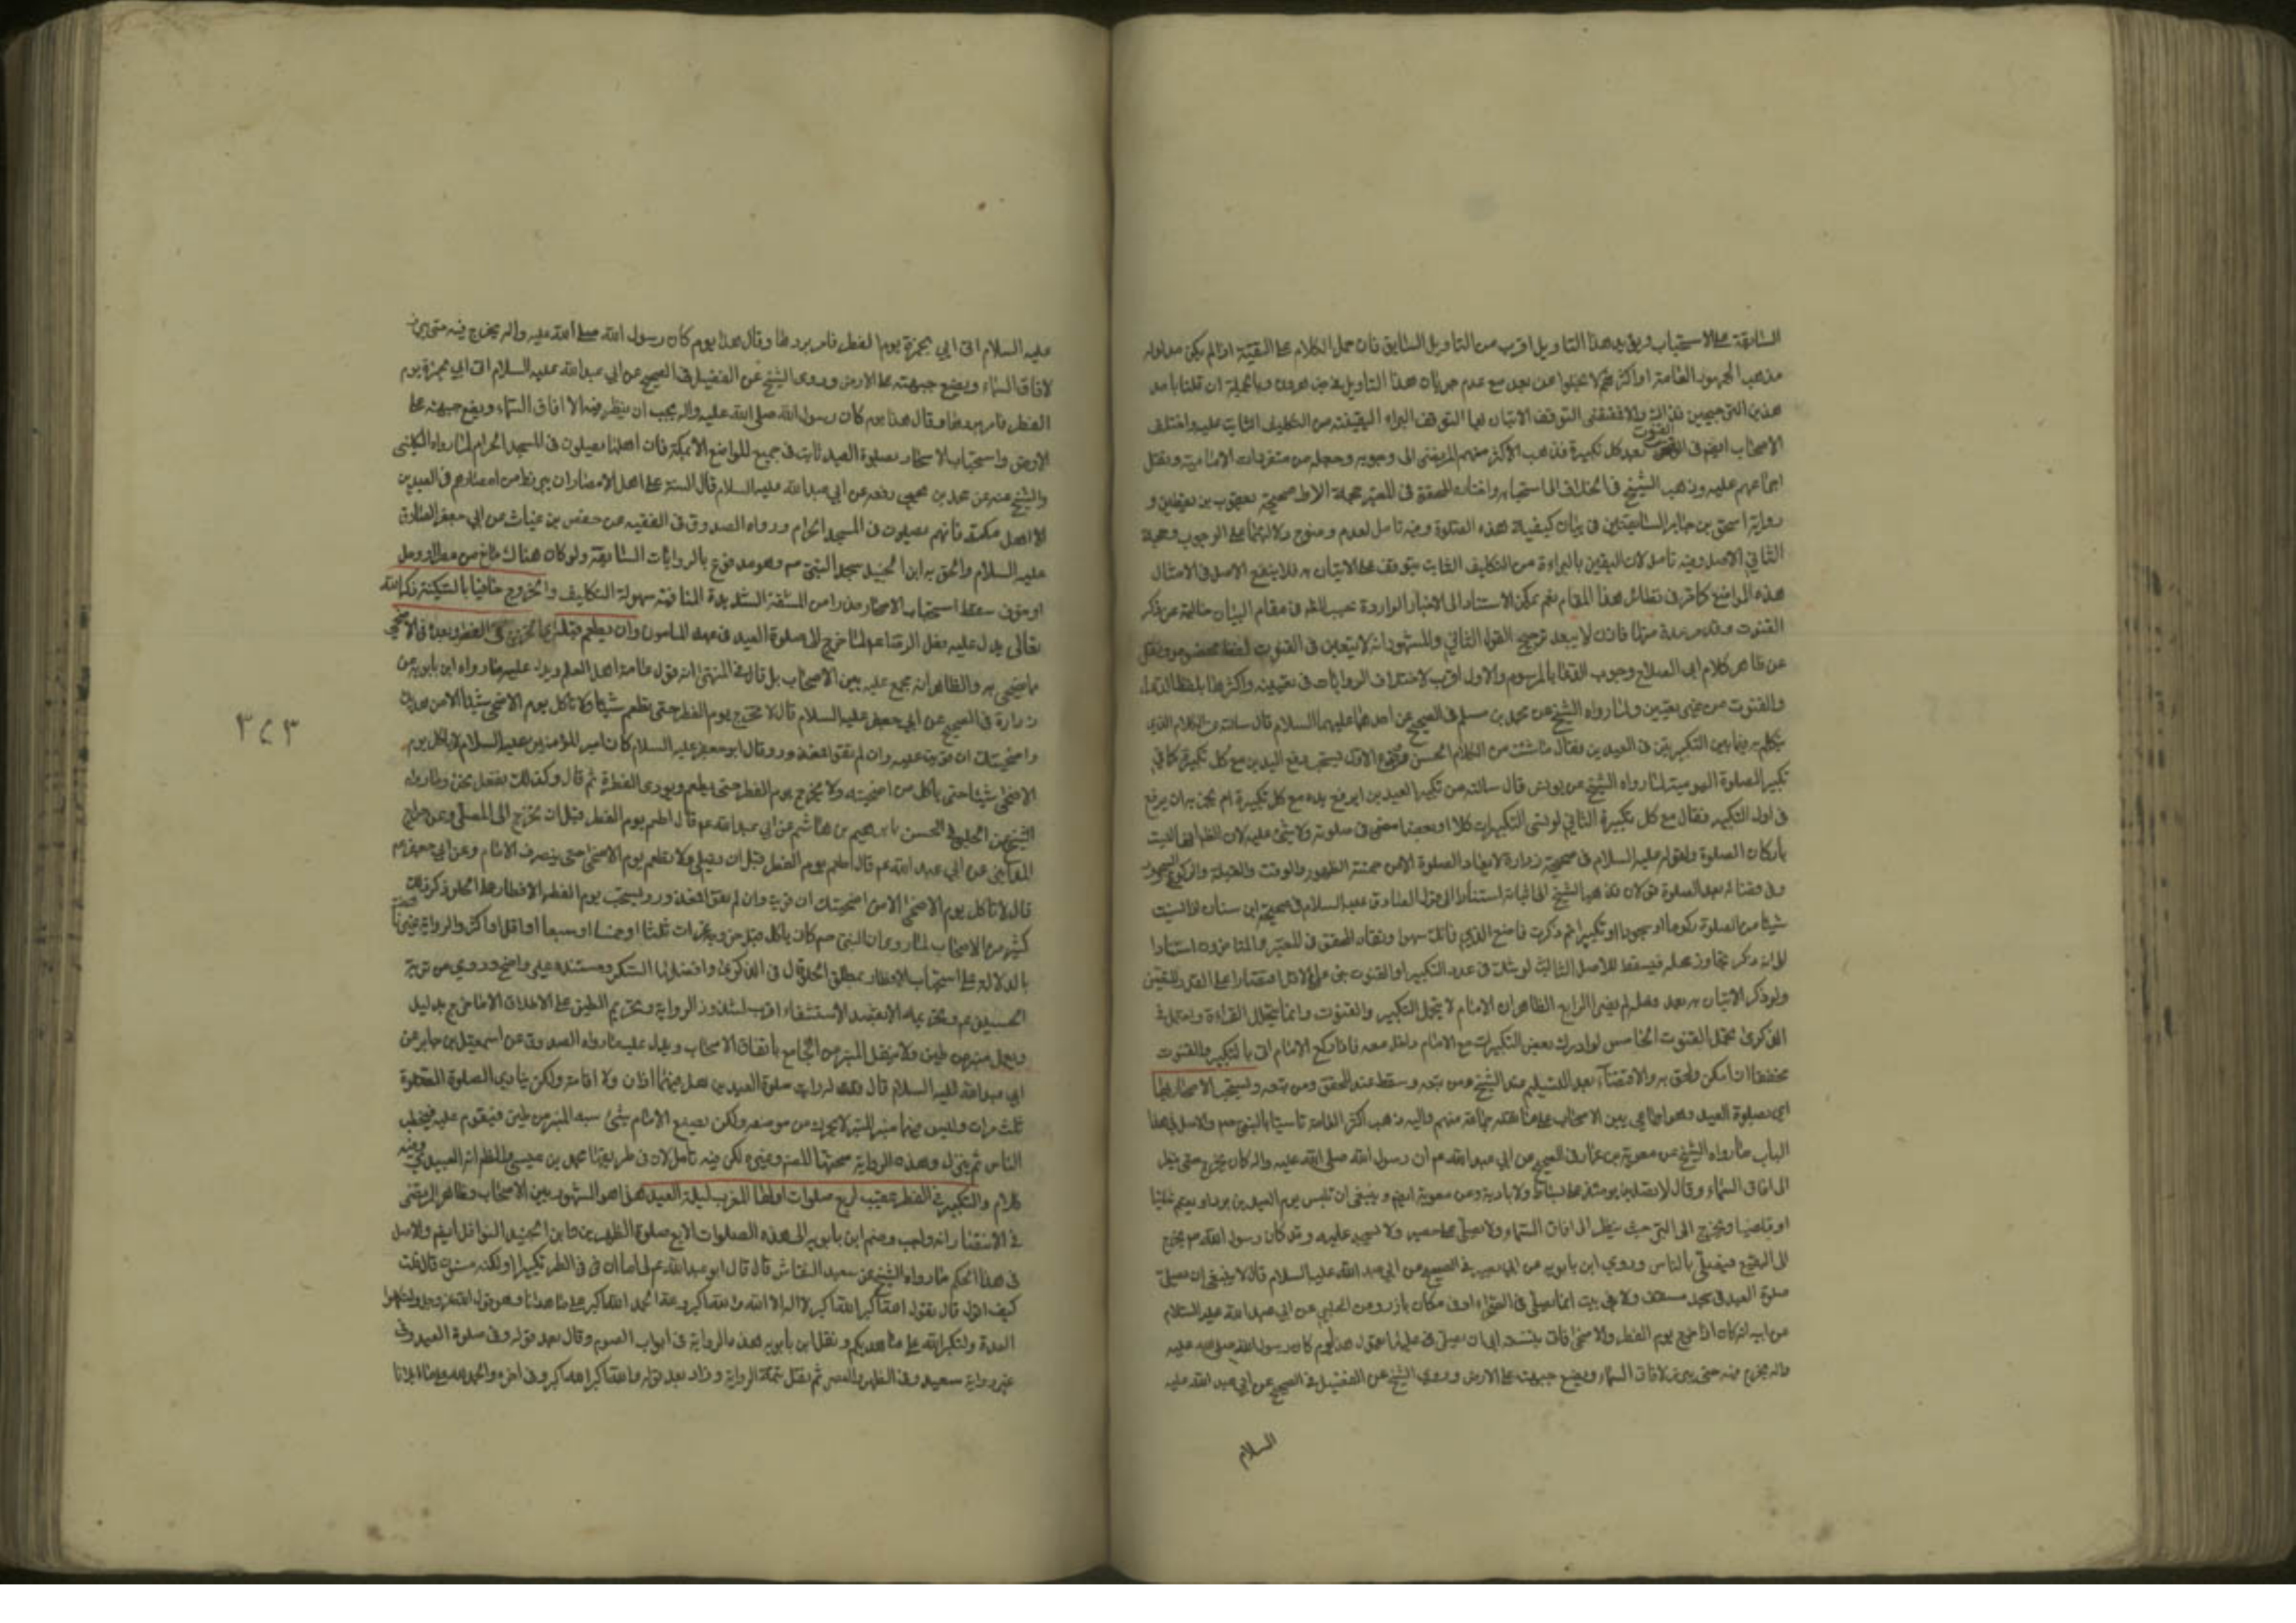 السابقة على الاستحباب ويؤيد هذا التاويل اقرب من التاويل السابق فان حمل الكلام على التقية اذا لم يكن مدلوله
مذهب الجمهور العامة او اكثرهم لا يخلوا عن بعد مع عدم جريان هذا التاويل في بعض وبالجملة ان قلنا باحد
هذين الترجيحين فذاك والا فمقتضى التوقف الاتيان بها لتوقف البراءة اليقينية من التكليف الثابت عليه واختلف
الاصحاب ايضا في القنوت بعد كل تكبيرة فذهب الاكثر منهم المرتضى الى وجوبه وجعله من متفردات الامامية ونقل
اجماعهم عليه وذهب الشيخ في الخلاف الى استحبابه واختاره المحقق في المعتبر حجة الاول صحيحة يعقوب بن يقطين و
رواية اسحق بن جابر السابقتين في بيان كيفية هذه الصلوة وفيه تامل لعدم وضوح دلالتهما على الوجوب وحجة
الثاني الاصل وفيه تامل لان اليقين بالبراءة من التكليف الثابت يتوقف على الاتيان به فلا ينفع الاصل في الامثال
هذه المواضع كما مر في نظائر هذا المقام نعم يمكن الاستناد الى الاخبار الواردة في مقام البيان خالية عن ذكر
القنوت وقد مر عدة منها فاذن لا يبعد ترجيح القول الثاني والمشهور انه لا يتعين في القنوت لفظ مخصوص ونقل
عن ظاهر كلام ابي الصلاح وجوب الدعاء بالمرسوم والاول اقرب لاختلاف الروايات في تعيينه واكثرها بلفظ الدعاء
والقنوت من غير تعيين ولما رواه الشيخ عن محمد بن مسلم في الصحيح عن احدهما عليهما السلام قال سالته عن الكلام الذي
يتكلم به فيما بين التكبيرتين في العيدين فقال ما شئت من الكلام الحسن فروع الاول يستحب رفع اليدين مع كل تكبيرة كما في
تكبير الصلوة اليومية لما رواه الشيخ عن يونس قال سالته عن تكبير العيدين ايرفع يده مع كل تكبيرة ام يجزيه ان يرفع
في اول التكبير فقال مع كل تكبيرة الثاني لو نسى التكبيرات كلا او بعضا مضى في صلوته ولا شئ عليه لان الظاهر انها ليست
باركان الصلوة ولقوله عليه السلام في صحيحة زرارة لا يعاد الصلوة الا من خمسة الطهور والوقت والقبلة والركوع والسجود
وفي قضائه بعد الصلوة قولان فذهب الشيخ الى اثباته استنادا الى قول الصادق عليه السلام في صحيحة ابن سنان اذا نسيت
شيئا من الصلوة ركوعا او سجودا او تكبيرا ثم ذكرت فاصنع الذي فاتك سهوا ونفاه المحقق في المعتبر استنادا
الى انه ذكر تجاوز محله فيسقط للاصل الثالث لو شك في عدد التكبير او القنوت بنى على الاقل اقتصارا على القدر المتيقن
ولو ذكر الاتيان به بعد فعله لم يضر الرابع الظاهر ان الامام لا يتحمل التكبير والقنوت وانما يتحمل القراءة ويحتمل في
الذكرى تحمل القنوت الخامس لو ادرك بعض التكبيرات مع الامام دخل معه فاذا ركع الامام اتى بالتكبير والقنوت
مخففا ان امكن ولحق به والا قضاء بعد التسليم عند الشيخ ومن تبعه وسقط عند المحقق ومن تبعه ويستحب الاصحار بها
اي بصلوة العيد وهو اجماعي بين الاصحاب على ما نقله جماعة منهم واليه ذهب اكثر العامة تاسيا بالنبي صم والاصل في هذا
الباب ما رواه الشيخ عن معوية بن عمار في الصحيح عن ابي عبد الله عم ان رسول الله صلى الله عليه واله كان يخرج حتى ينظر
الى افاق السماء وقال لا يصلين يومئذ على بساط ولا بارية وعن معوية ايضا وينبغي ان تلبس يوم العيدين بردا ويعتم شاتيا
او قايضا ويخرج الى البر حيث ينظر الى افاق السماء ولا يصلي على حصير ولا يسجد عليه وقد كان رسول الله صم يخرج
الى البقيع فيصلي بالناس وروى ابن بابويه عن ابي بصير في الصحيح عن ابي عبد الله عليه السلام قال لا ينبغي ان يصلى
صلوة العيد في مسجد مسقف ولا في بيت انما يصلي في الصحراء او في مكان بارز وعن الحلبي عن ابي عبد الله عليه السلام
عن ابيه انه كان اذا خرج يوم الفطر والاضحى ابى ان يصلي عليها يقول هذا يوم كان رسول الله صلى الله عليه
واله يخرج فيه حتى يبرز لافاق السماء ويضع جبهته على الارض وروى الشيخ عن الفضيل في الصحيح عن ابي عبد الله عليه
السلام
عليه السلام اتى ابي بخمرة يوم الفطر فامر بردها وقال هذا يوم كان رسول الله صلى الله عليه واله يخرج فيه حتى يبرز
لافاق السماء ويضع جبهته على الارض وروى الشيخ عن الفضيل في الصحيح عن ابي عبد الله عليه السلام اتى ابي بخمرة يوم
الفطر فامر بردها وقال هذا يوم كان رسول الله صلى الله عليه واله يحب ان ينظر فيه الى افاق السماء ويضع جبهته على
الارض واستحباب الاصحار بصلوة العيد ثابت في جميع المواضع الا بمكة فان اهلها يصلون في المسجد الحرام لما رواه الكليني
والشيخ عنه عن محمد بن يحيى رفعه عن ابي عبد الله عليه السلام قال السنة على اهل الامصار ان يبرزوا من امصارهم في العيدين
الا اهل مكة فانهم يصلون في المسجد الحرام ورواه الصدوق في الفقيه عن حفص بن غياث عن ابي جعفر الصادق
عليه السلام والحق به ابن الجنيد مسجد النبي صم وهو مدفوع بالروايات السابقة ولو كان هناك مانع من مطر او وحل
او خوف سقط استحباب الاصحار حذرا من المشقة الشديدة المنافية سهولة التكاليف والخروج حافيا بالسكينة ذاكرا لله
تعالى يدل عليه فعل الرضا عم لما خرج لصلوة العيد في عهد المامون وان يطعم قبل الخروج في الفطر وبعده في الاضحى
مما يضحى به والظاهر انه مجمع عليه بين الاصحاب بل قال في المنتهى انه قول عامة اهل العلم ويدل عليه ما رواه ابن بابويه عن
زرارة في الصحيح عن ابي جعفر عليه السلام قال لا تخرج يوم الفطر حتى تطعم شيئا ولا تاكل يوم الاضحى شيئا الا من هديك
واضحيتك ان قويت عليه وان لم تقو فمعذور وقال ابو جعفر عليه السلام كان امير المؤمنين عليه السلام لا ياكل يوم
الاضحى شيئا حتى ياكل من اضحيته ولا يخرج يوم الفطر حتى يطعم ويؤدى الفطرة ثم قال وكذلك نفعل نحن وما رواه
الشيخ عن الحلبي في الحسن بابراهيم بن هاشم عن ابي عبد الله عم قال اطعم يوم الفطر قبل ان تخرج الى المصلى وعن جراح
المدايني عن ابي عبد الله عم قال اطعم يوم الفطر قبل ان يصلى ولا تطعم يوم الاضحى حتى ينصرف الامام وعن ابي جعفر عم
قال لا تاكل يوم الاضحى الا من اضحيتك ان قويت وان لم تقو فمعذور ويستحب يوم الفطر الافطار على الحلو ذكره
كثير من الاصحاب لما روى ان النبي صم كان ياكل قبل خروجه تمرات ثلثا او خمسا او سبعا او اقل او اكثر والرواية
بالدلالة على استحباب الافطار بمطلق الحلو قال في الذكرى وافضلها السكر ومستنده غير واضح وروي من تربة
الحسين عم وتحريمه الا بقصد الاستشفاء اقرب لشذوذ الرواية وتحريم الطين على الاطلاق الا ما خرج بدليل
ويعمل منبر من طين ولا ينقل المنبر من الجامع باتفاق الاصحاب ويدل عليه ما رواه الصدوق عن اسمعيل بن جابر عن
ابي عبد الله عليه السلام قال قلت له ارايت صلوة العيدين هل فيهما اذان ولا اقامة ولكن ينادي الصلوة الصلوة
ثلث مرات وليس فيهما منبر المنبر لا يحرك من موضعه ولكن يصنع الامام شئ شبه المنبر من طين فيقوم عليه فيخطب
الناس ثم ينزل وهذه الرواية صححها المص وغيره لكن فيه تامل لان في طريقها محمد بن عيسى والظاهر انه العبيدي وفيه
كلام والتكبير في الفطر عقيب اربع صلوات اولها المغرب ليلة العيد هذا هو المشهور بين الاصحاب وظاهر المرتضى
في الانتصار انه واجب وضم ابن بابويه الى هذه الصلوات الاربع صلوة الظهرين وابن الجنيد النوافل ايضا والاصل
في هذا الحكم ما رواه الشيخ عن سعيد النقاش قال قال ابو عبد الله عم لي اما ان في الفطر تكبيرا ولكنه مسنون قال قلت
كيف اقول قال تقول الله اكبر الله اكبر لا اله الا الله والله اكبر ولله الحمد الله اكبر على ما هدانا وهو قول الله عز وجل ولتكملوا
العدة ولتكبروا الله على ما هديكم ونقل ابن بابويه هذه الرواية في ابواب الصوم وقال بعد قوله وفي صلوة العيد وفي
غير رواية سعيد وفي الظهر والعصر ثم نقل تتمة الرواية وزاد بعد قوله والله اكبر الله اكبر وفي اخره والحمد لله على ما ابلانا
٣٢٣